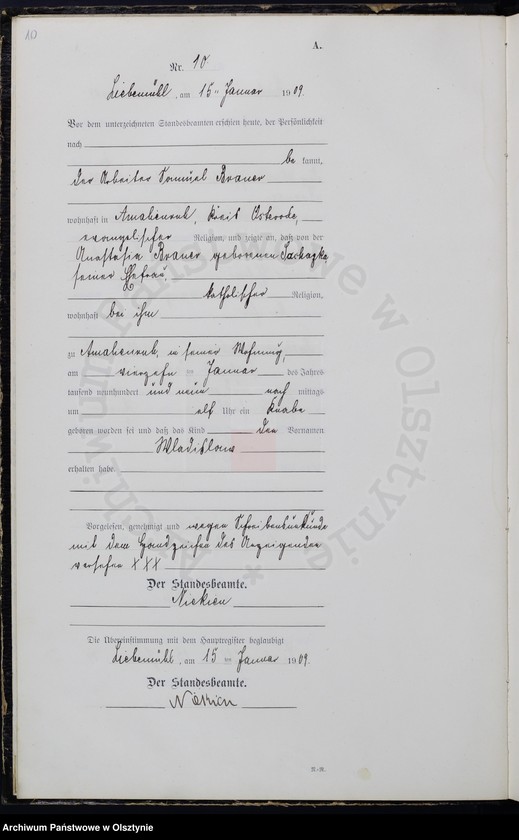 10
A.
Nr. 10
Liebemühl, am 15ten Januar 1909.
Vor dem unterzeichneten Standesbeamten erschien heute, der Persönlichkeit
nach
be kannt,
der Arbeiter Samuel Brauer
wohnhaft in Amalienruh, Kreis Osterode,
evangelischer Religion, und zeigte an, daß von der
Anastasia Brauer geborenen
seiner Ehefrau,
katholischer Religion,
wohnhaft bei ihm
zu Amalienruh, in seiner Wohnung,
am vierzehnten Januar des Jahres
tausend neunhundert und neun nach mittags
um elf Uhr ein Knabe
geboren worden sei und daß das Kind den Vornamen
Wladislaus
erhalten habe
Vorgelesen, genehmigt und wegen Schreibensunkunde
mit dem Handzeichen des Anzeigenden
versehen XXX
Der Standesbeamte.
Die Übereinstimmung mit dem Hauptregister beglaubigt
Liebemühl, am 15ten Januar 1909.
Der Standesbeamte.
Archiwum Państwowe w Olsztynie
Archiwum Państwowe w Olsztynie